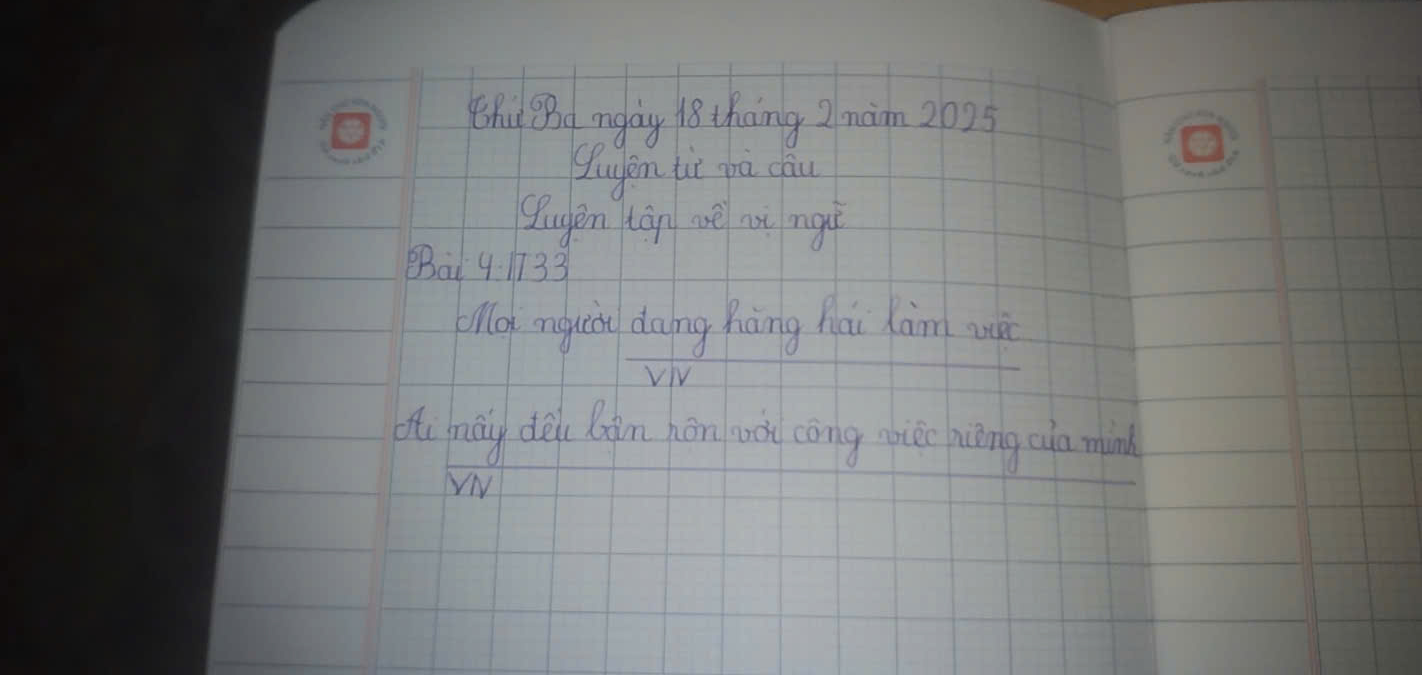 Thứ Ba ngày 18 tháng 2 năm 2025
Luyện từ và câu
Luyện tập về vị ngữ
Bài 4:1T33
Mọi người đang hăng hái làm việc
VN
Ai nấy đều bận rộn với công việc riêng của mình
VN